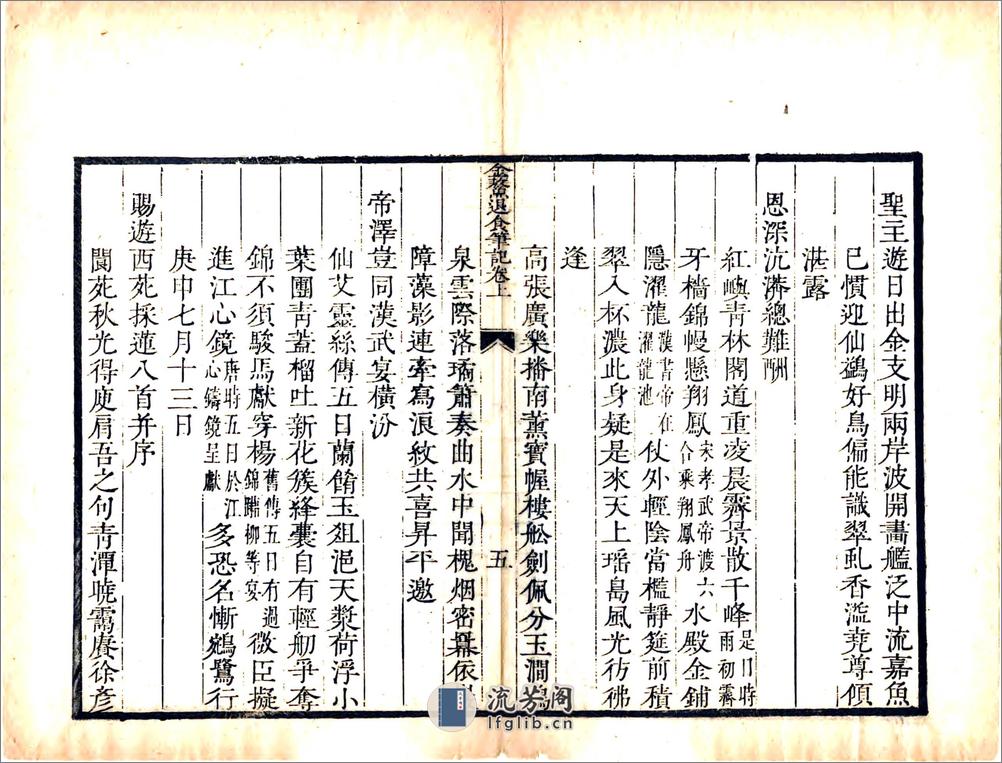 聖主遊日出金支明兩岸波開畫艦泛中流嘉魚
已慣迎仙鷁好鳥偏能識翠虬香溢堯尊傾
湛露
恩深沆瀣總難酬
紅嶼青林閣道重凌晨霽景散千峰是日時雨初霽
牙檣錦幔懸翔鳳宋孝武帝渡六合乘翔鳳舟水殿金鋪
隱濯龍漢書帝在濯龍池仗外輕陰當檻靜筵前積
翠入杯濃此身疑是來天上瑶島風光彷彿
逢
金鰲退食筆記卷上
五
高張廣樂播南薰寶幄樓船劍佩分玉澗鳴
泉雲際落璚簫奏曲水中聞槐烟密幕依
障藻影連牽寫浪紋共喜昇平邀
帝澤豈同漢武宴橫汾
仙艾靈絲傳五日蘭餚玉俎浥天漿荷浮小
葉團青蓋榴吐新花簇絳囊自有輕舠爭奪
錦不須駿馬獻穿楊舊傳五日有過錦斸柳等宴微臣擬
進江心鏡唐時五日於江心鑄鏡呈獻多恐名慚鵷鷺行
庚申七月十三日
賜遊西苑採蓮八首并序
閬苑秋光得庾肩吾之句青潭曉靄賡徐彥
流芳阁
lfglib.cn